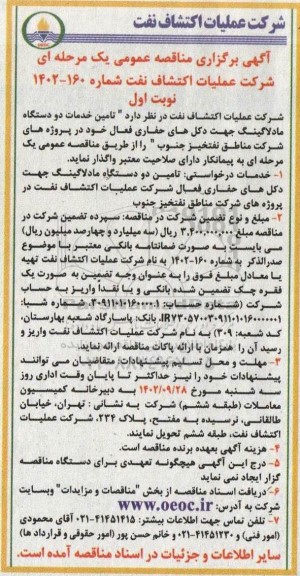 شرکت عملیات اکتشاف نفت
آگهی برگزاری مناقصه عمومی یک مرحله ای
شرکت عملیات اکتشاف نفت شماره ۱۶۰-۱۴۰۲
نوبت اول
شرکت عملیات اکتشاف نفت در نظر دارد " تامین خدمات دو دستگاه
مادلاگینگ جهت دکل های حفاری فعال خود در پروژه های
شرکت مناطق نفتخیز جنوب " را از طریق مناقصه عمومی یک
مرحله ای به پیمانکار دارای صلاحیت معتبر واگذار نماید.
۱- خدمات درخواستی: تامین دو دستگاه مادلاگینگ جهت
دکل های حفاری فعال شرکت عملیات اکتشاف نفت در
پروژه های شرکت مناطق نفتخیز جنوب
۲- مبلغ و نوع تضمین شرکت در مناقصه: سپرده تضمین شرکت در
مناقصه مبلغ ۳,۴۰۰,۰۰۰,۰۰۰ ریال (سه میلیارد و چهارصد میلیون ریال)
می بایست به صورت ضمانتنامه بانکی معتبر با موضوع
صدرالذکر به شماره ۱۶۰-۱۴۰۲ به نام شرکت عملیات اکتشاف نفت تهیه
یا معادل مبلغ فوق را به عنوان وجه تضمین به صورت یک
فقره چک تضمین شده بانکی و یا نقداً واریز به حساب
شرکت (شماره حساب: شماره شبا:
بانک: پاسارگاد شعبه بهارستان،
کد شعبه: ۳۰۹) به نام شرکت عملیات اکتشاف نفت واریز و
رسید آن را همزمان با ارائه پاکات مناقصه ارائه نماید.
۳- مهلت و محل تسلیم پیشنهادات: متقاضیان می توانند
پیشنهادات خود را نیز حداکثر تا پایان وقت اداری روز
سه شنبه مورخ ۱۴۰۲/۰۹/۲۸ به دبیرخانه کمیسیون
معاملات (طبقه ششم) شرکت به نشانی : تهران، خیابان
طالقانی، نرسیده به مفتح، پلاک ۲۳۴، شرکت عملیات
اکتشاف نفت، طبقه ششم تحویل نمایند.
۴- هزینه آگهی بعهده برنده مناقصه است.
۵- درج این آگهی هیچگونه تعهدی برای دستگاه مناقصه
گزار ایجاد نمی نماید
۶- دریافت اسناد مناقصه از بخش "مناقصات و مزایدات" وبسایت
شرکت به آدرس: www.oeoc.ir
۷- تلفن تماس جهت اطلاعات بیشتر: ۴۱۴۵۱۴۱۵-۰۲۱ آقای محمودی
(امور فنی) و ۴۱۴۵۱۲۳۰-۰۲۱ و خانم حسن پور (امور حقوقی و قرارداد ها)
سایر اطلاعات و جزئیات در اسناد مناقصه آمده است.